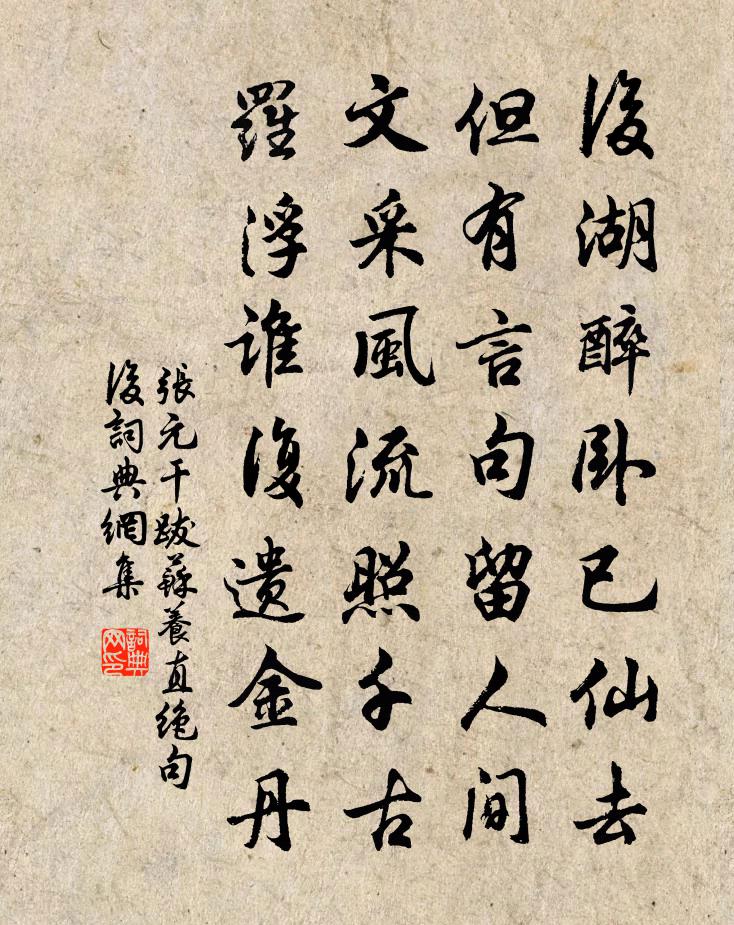 後湖醉卧已仙去
但有言句留人間
文采風流照千古
羅浮誰復遺金丹
張元干跋蘇養直绝句
後詞典網集
詞典网印